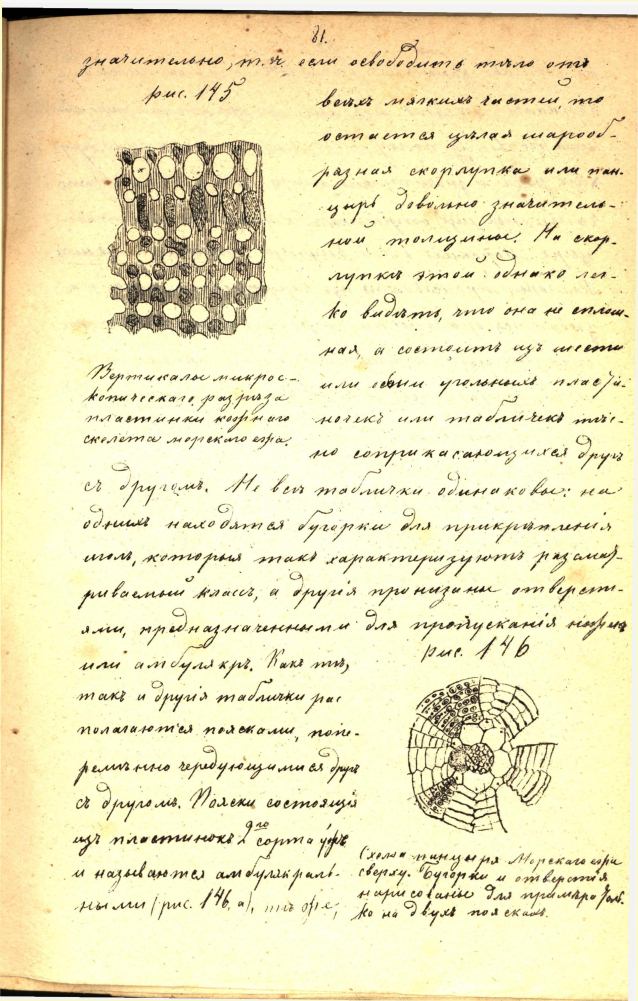 81.
значительно, т. ч. если освободить тѣло отъ
рис. 145
всѣхъ мягкихъ частей, то
остается цѣлая шарооб-
разная скорлупка или пан-
цырь довольно значитель-
ной толщины. На скор-
лупкѣ этой однако лег-
ко видѣть, что она не сплош-
ная, а состоитъ изъ шести
или угольныхъ пласти-
ночекъ или табличекъ тѣс-
но соприкасающихся другъ
Вертикалы микрос-
копическаго разрѣза
пластинки кожнаго
скелета морскаго ежа.
съ другомъ. Не всѣ таблички одинаковы: на
однихъ находятся бугорки для прикрѣпленія
иголъ, которыя такъ характеризуютъ разсмат-
риваемый классъ, а другія пронизаны отверсті-
ями, предназначенными для пропусканія ножекъ
или амбулякръ. Какъ тѣ,
такъ и другія таблички рас
полагаются поясками, попе-
ремѣнно чередующимися другъ
съ другомъ. Пояски состоящія
изъ пластинокъ 2го сорта
и называются амбулякраль-
ными (рис. 146, а), тѣ же,
рис. 146
Схема панцыря Морскаго ежа
сверху. Бугорки и отверстія
нарисованы для примѣра толь-
ко на двухъ пояскахъ.